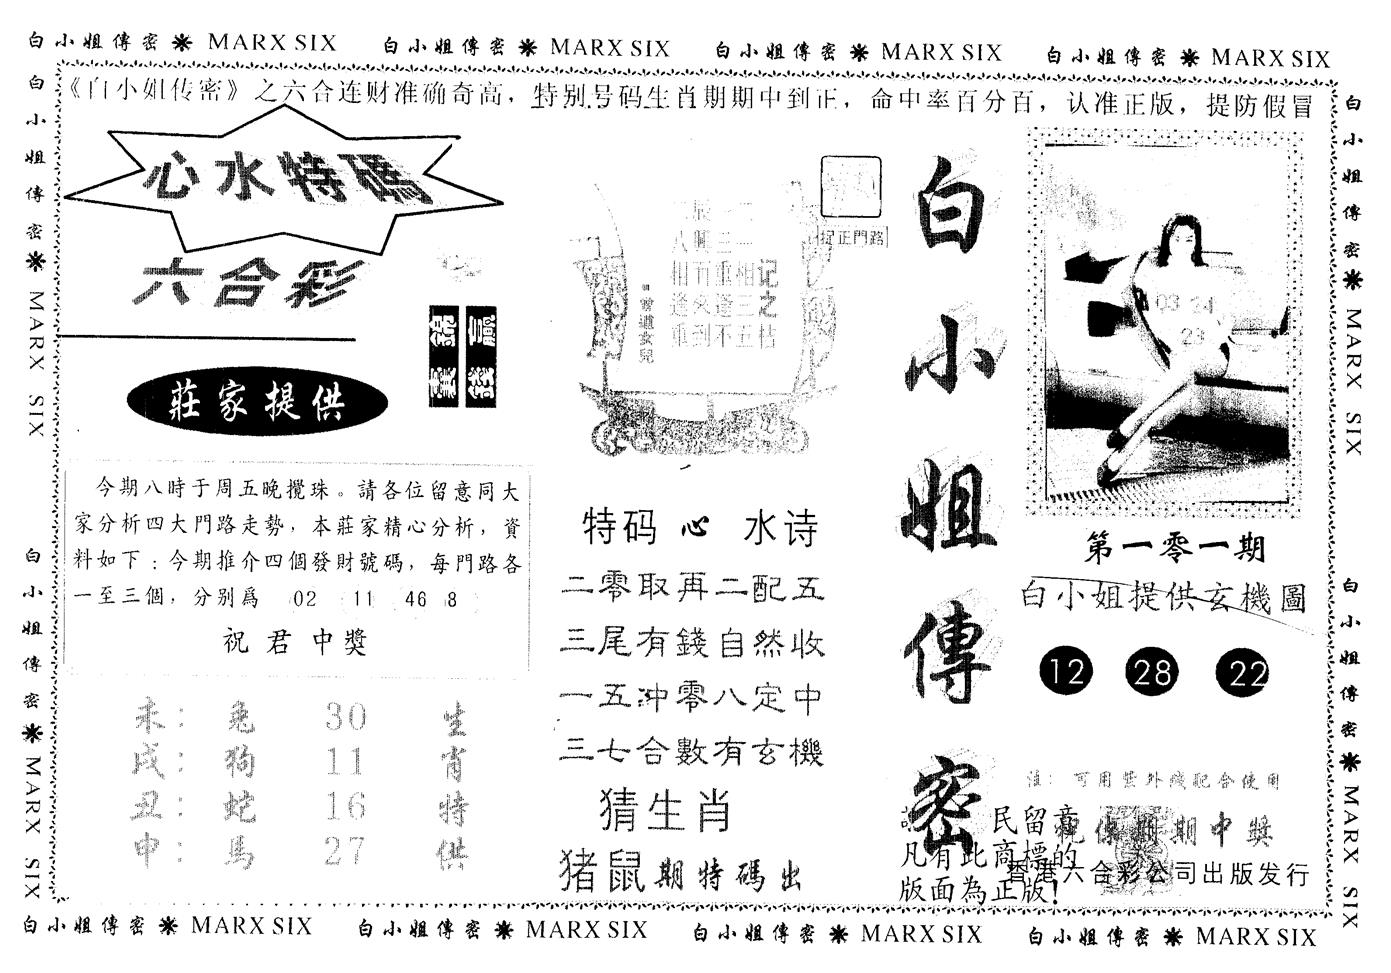 白小姐傳密 MARX SIX 白小姐傳密 MARX SIX 白小姐傳密 MARX SIX 白小姐傳密 MARX SIX
《白小姐传密》之六合连财准确奇高，特别号码生肖期期中到正，命中率百分百，认准正版，提防假冒
白小姐傳密 MARX SIX
白小姐傳密 MARX SIX
心水特碼
六合彩
莊家提供
今期八時于周五晚攪珠。請各位留意同大
家分析四大門路走勢，本莊家精心分析，資
料如下：今期推介四個發財號碼，每門路各
一至三個，分别爲 02 11 46 8
祝君中獎
未： 兔 30 生
戌： 狗 11 肖
丑： 蛇 16 特
申： 馬 27 供
捉正門路
记之
相三五枯
重遂不
相逢重
曾道女兒
特码心水诗
二零取再二配五
三尾有錢自然收
一五冲零八定中
三七合數有玄機
猜生肖
猪鼠期特碼出
白小姐傳密
03 24
23
第一零一期
白小姐提供玄機圖
12 28 22
注：可用紫外线配合使用
期期中獎
民留意
凡有此商標的
版面為正版!
香港六合彩公司出版发行
白小姐傳密 MARX SIX
白小姐傳密 MARX SIX
白小姐傳密 MARX SIX 白小姐傳密 MARX SIX 白小姐傳密 MARX SIX 白小姐傳密 MARX SIX